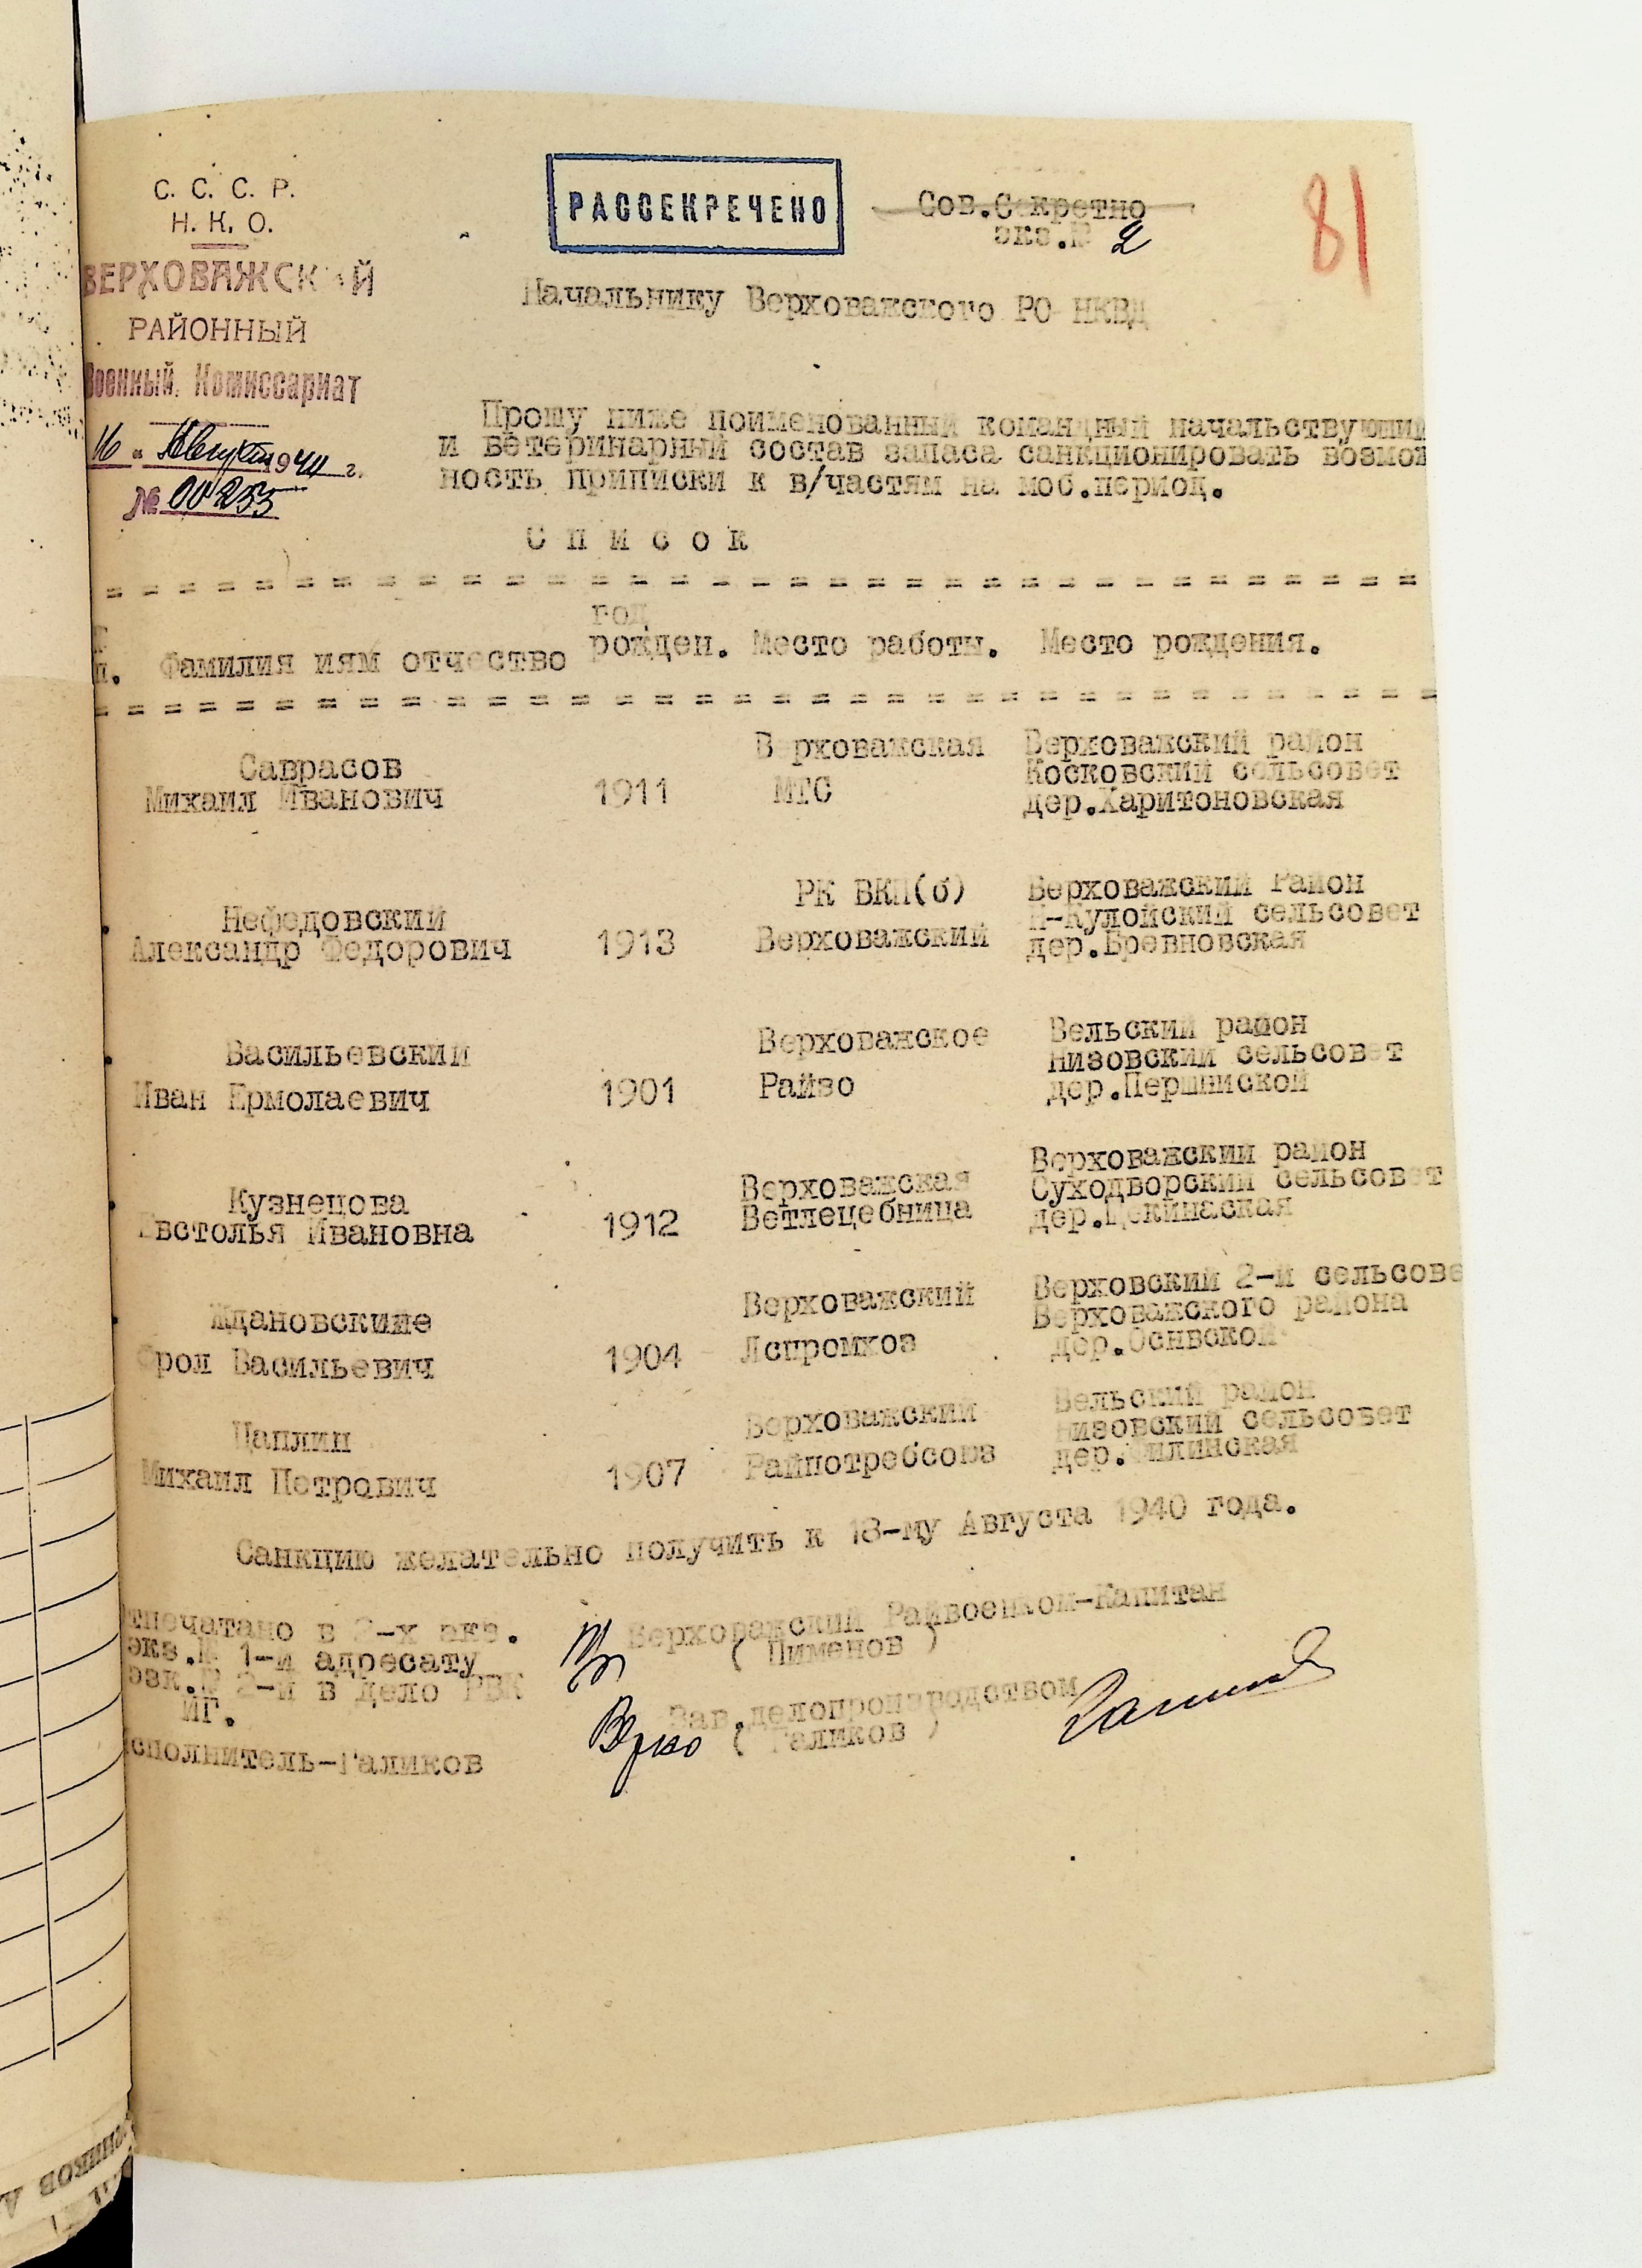 С. С. С. Р.
Н. К. О.
ВЕРХОВАЖСКИЙ
РАЙОННЫЙ
Военный Комиссариат
16 " Августа 1940 г.
№ 00255
РАССЕКРЕЧЕНО
Сов.Секретно
экз.№ 2
81
Начальнику Верховажского РО НКВД
Прошу ниже поименованный командный начальствующий
и ветеринарный состав запаса санкционировать возмож
ность приписки к в/частям на моб.период.
С п и с о к
год
п. Фамилия иям отчество рожден. Место работы. Место рождения.
Верховажская Верховажский район
Саврасов Косковский сельсовет
Михаил Иванович 1911 МТС дер.Харитоновская
РК ВКП(б) Верховажский Район
Нефедовский Н-Кулойский сельсовет
Александр Федорович 1913 Верховажский дер.Бревновская
Верхованское Вельский район
Васильевский Низовский сельсовет
Иван Ермолаевич 1901 Райзо дер.Першинской
Верховажский район
Кузнецова Верховажская Суходворский сельсовет
Евстолья Ивановна 1912 Ветлецебница
Верховажский Верховский 2-й сельсове
Ждановскине Верховажского района
Фрол Васильевич 1904 Лспромхоз дер.Оснвской
Вельский район
Цаплин Верховажский Низовский сельсовет
Михаил Петрович 1907 Райпотребсоюз дер.Филинская
Санкцию желательно получить к 18-му Августа 1940 года.
тпечатано в 2-х экз. Верховажский Райвоенком-Капитан
экз.№ 1-й адресату ( Пименов )
эзк.№ 2-й в дело РВК
МГ. Зав.делопроизводством
Верно ( Галиков )
сполнитель-Галиков